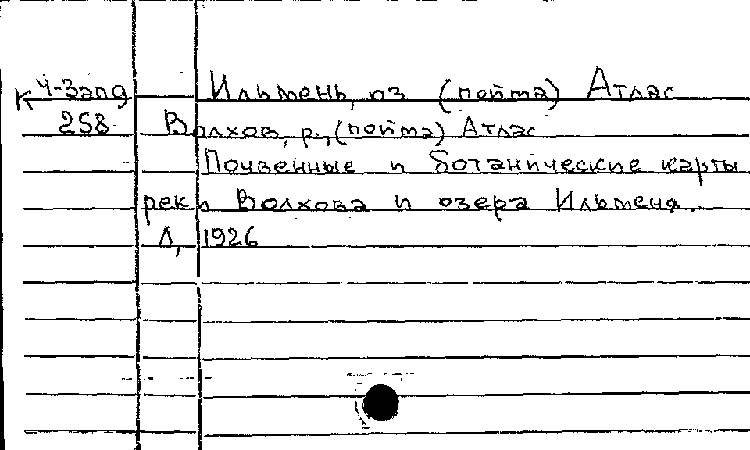 К Ч-Запд Ильмень, оз (пойма) Атлас
258 Волхов, р., (пойма) Атлас
Почвенные и ботанические карты
реки Волхова и озера Ильменя.
Л, 1926